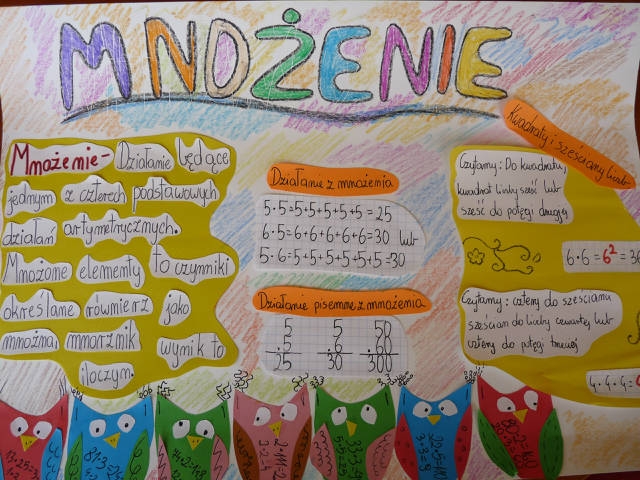 MNOŻENIE
Mnożenie- Działanie będące
jednym z czterech podstawowych
działań arytmetrycznych.
Mnożone elementy to czynniki
określane również jako
mnożna, mnożnik
wynik to
iloczyn.
Działanie z mnożenia
5·5=5+5+5+5+5=25
6·5=6+6+6+6+6=30 lub
5·6=5+5+5+5+5+5=30
Działanie pisemne z mnożenia
5 5 50
·5 ·6 ·6
25 30 300
Kwadraty i sześciany liczb
Czytamy: Do kwadratu,
kwadrat liczby sześć lub
sześć do potęgi drugiej
6·6=6²=36
Czytamy: cztery do sześcianu
sześcian do liczby czwartej lub
cztery do potęgi trzeciej
4·4·4=